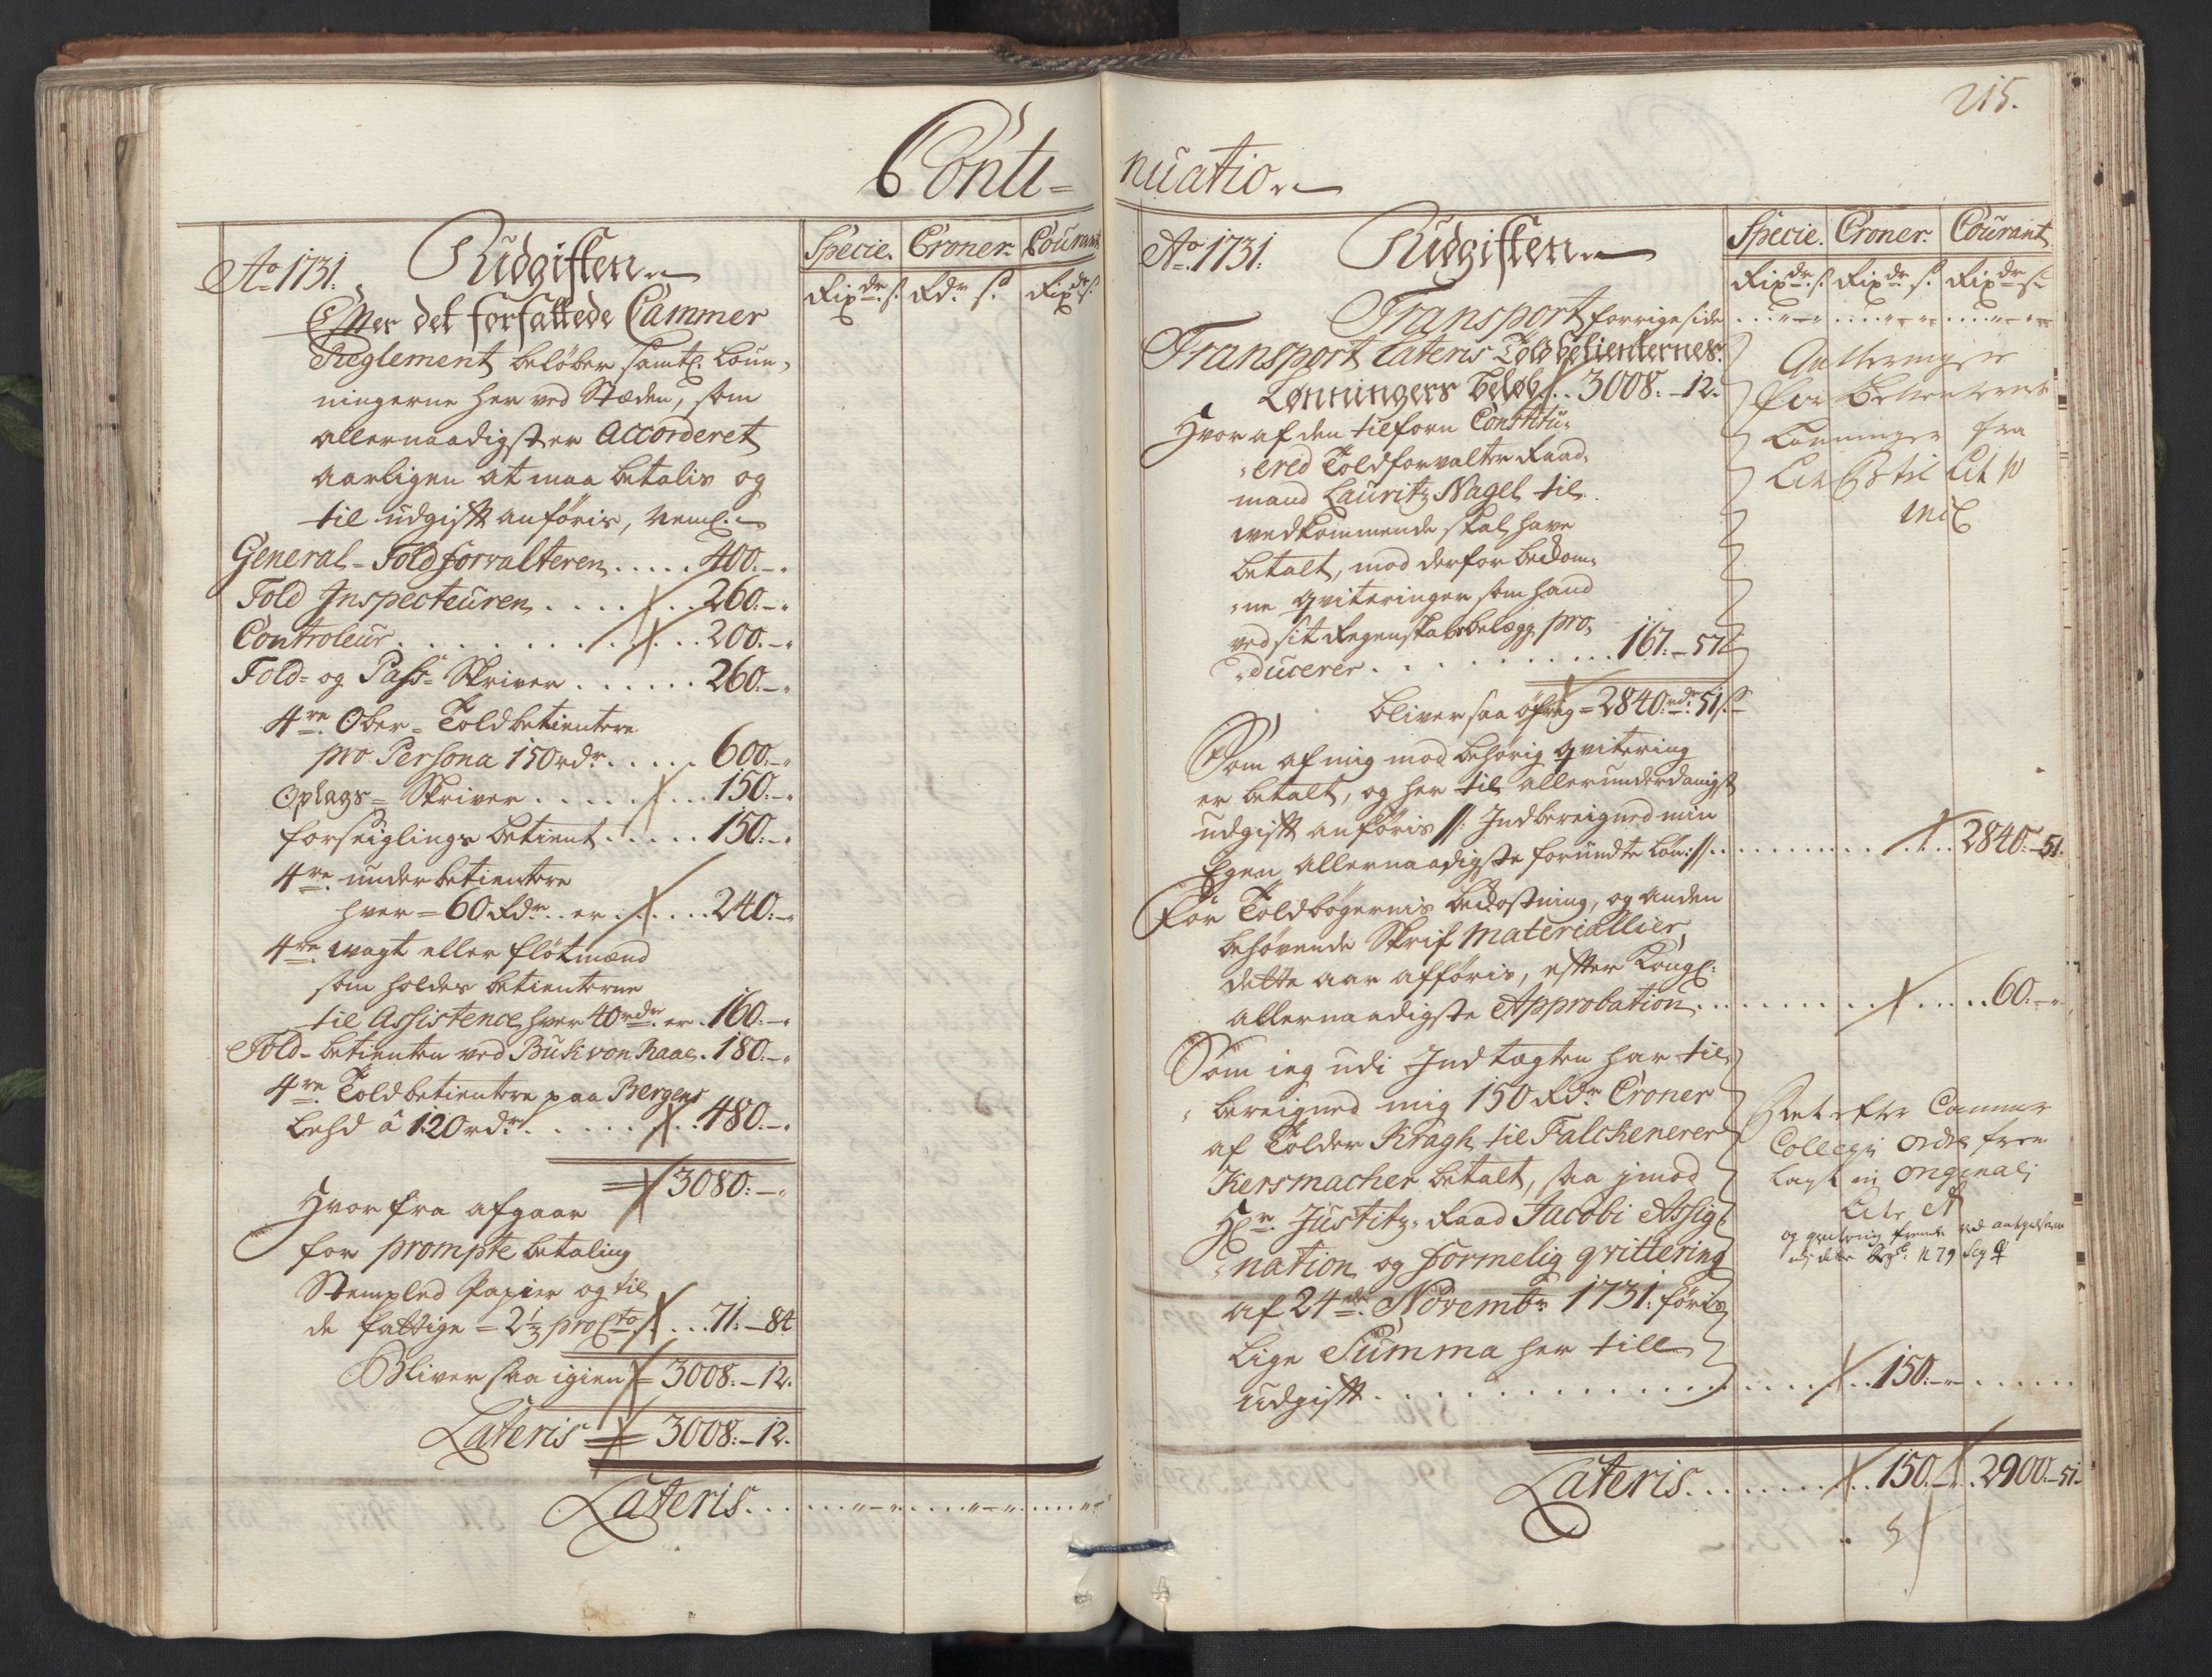 215.
Conti=
nuatio.
Ao 1731. Tudgiften.
Specie. Croner. Courant
Rixdr. s. Rdr. s. Rixdr. s.
Efter det forfattede Cammer
Reglement beløber samtl. Løn-
ningerne her ved Stæden, som
allernaadigst er Accorderet
aarligen at maa betalis og
til udgifft anføris, Neml.
General-Toldforvalteren ..... 400.-.
Told Inspecteuren ..... 260.-.
Controleur ..... 200.-.
Told- og Pass-Skriver ...... 260.-.
4re. Ober-Toldbetientere
pro Persona 150 rdr. .... 600.-.
Oplags-Skriver ...... 150.-.
forseiglings betient ..... 150.-.
4re. under betientere
hver = 60 Rdr. er ..... 240.-.
4re. wagt eller flötmænd
som holdes betienterne
til Assistence hver 40 rdr. er . 160.-.
Told-betienten ved Buk von Raae . 180.-.
4re. Toldbetientere paa Bergens
Lehd â 120 rdr. ..... 480.-.
3080.-.
Hvorfra afgaar
for prompte betaling
Stempled Papier og til
de fattige = 2 1/3 pro Cto ... 71.-84
Bliver saa igien = 3008.-12.
Lateris = 3008.-12.
Lateris ....
Ao. 1731. Tudgiften.
Specie. Croner. Courant
Rixdr. s. Rixdr. s. Rixdr. s.
Transport forrige side
Transport Lateris Toldbetienternes
Lønningers beløb ... 3008.-12.
Hvoraf den tilforn Constitu-
-ered Toldforvalter Raad-
mand Lauritz Nagel til
wedkommende skal have
betalt, mod derfor bekom-
-ne qviteringer som hand
ved sit Regenskabs belægg pro-
-ducerer .......... 167.-57
Qvitteringer
for Betienternes
Lønninger fra
Lit til Lit W
incl
bliver saa øfrig = 2840 rdr. 51 s.
Som af mig mod behørig qvitering
er betalt, og her til allerunderdanigst
udgifft anføris //: Indbereigned min
Egen allernaadigste forundte Løn: // ........ 2840.-51.
For Toldbøgernis bekostning, og anden
behøvende Skrif Materiallier,
dette aar afføris, efter Kongl:
allernaadigste Approbation .......... 60.-.
Som ieg udi Indtægten har til-
bereigned mig 150 Rdr. Croner
af Tolder Kragh til Falchenerer
Kersmacher betalt, saa imod
Hr. Justitz-Raad Jacobi Assig-
-nation og formelig qvittering
af 24de. Novembr 1731. føris
lige Summa her till
udgifft ............ 150.-.
efter Cammer
Collegii Ordre frem
lagt in originali
Litr A
Lateris ...... 150.-. 2900.-51.